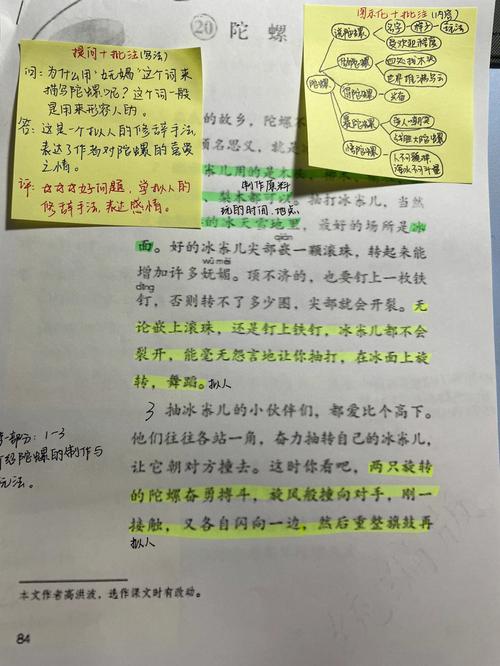 ⑳ 陀 螺
提问+批注(写法)
问:为什么用"妩媚"这个词来
描写陀螺呢?这个词一般
是用来形容人的。
答:这是一个拟人的修辞手法,
表达了作者对陀螺的喜爱
之情。
评:☆☆☆好问题,学拟人的
修辞手法,表达感情。
图示化+批注(内容)
陀螺
说陀螺
名字
样子
玩法
做陀螺
得陀螺
斗陀螺
悟陀螺
人不可貌相
海水不可斗量
的故乡,陀螺不
顾名思义,就是
冰尜儿用的是木
制作原料
梨木都可以。抽打冰尜儿,当然
玩的时间、地点
的冰天雪地里,最好的场所是冰
面。好的冰尜儿尖部嵌一颗滚珠,转起来能
qiàn
wǔ mèi
增加许多妩媚。顶不济的,也要钉上一枚铁
dīng
钉,否则转不了多少圈,尖部就会开裂。无
论嵌上滚珠,还是钉上铁钉,冰尜儿都不会
裂开,能毫无怨言地让你抽打,在冰面上旋
转,舞蹈。拟人
3 抽冰尜儿的小伙伴们,都爱比个高下。
他们往往各站一角,奋力抽转自己的冰尜儿,
让它朝对方撞去。这时你看吧,两只旋转
的陀螺奋勇搏斗,旋风般撞向对手,刚一
接触,又各自闪向一边,然后重整旗鼓再
拟人
部分:1-3
绍陀螺的制作与
玩法。
本文作者高洪波,选作课文时有改动。
84